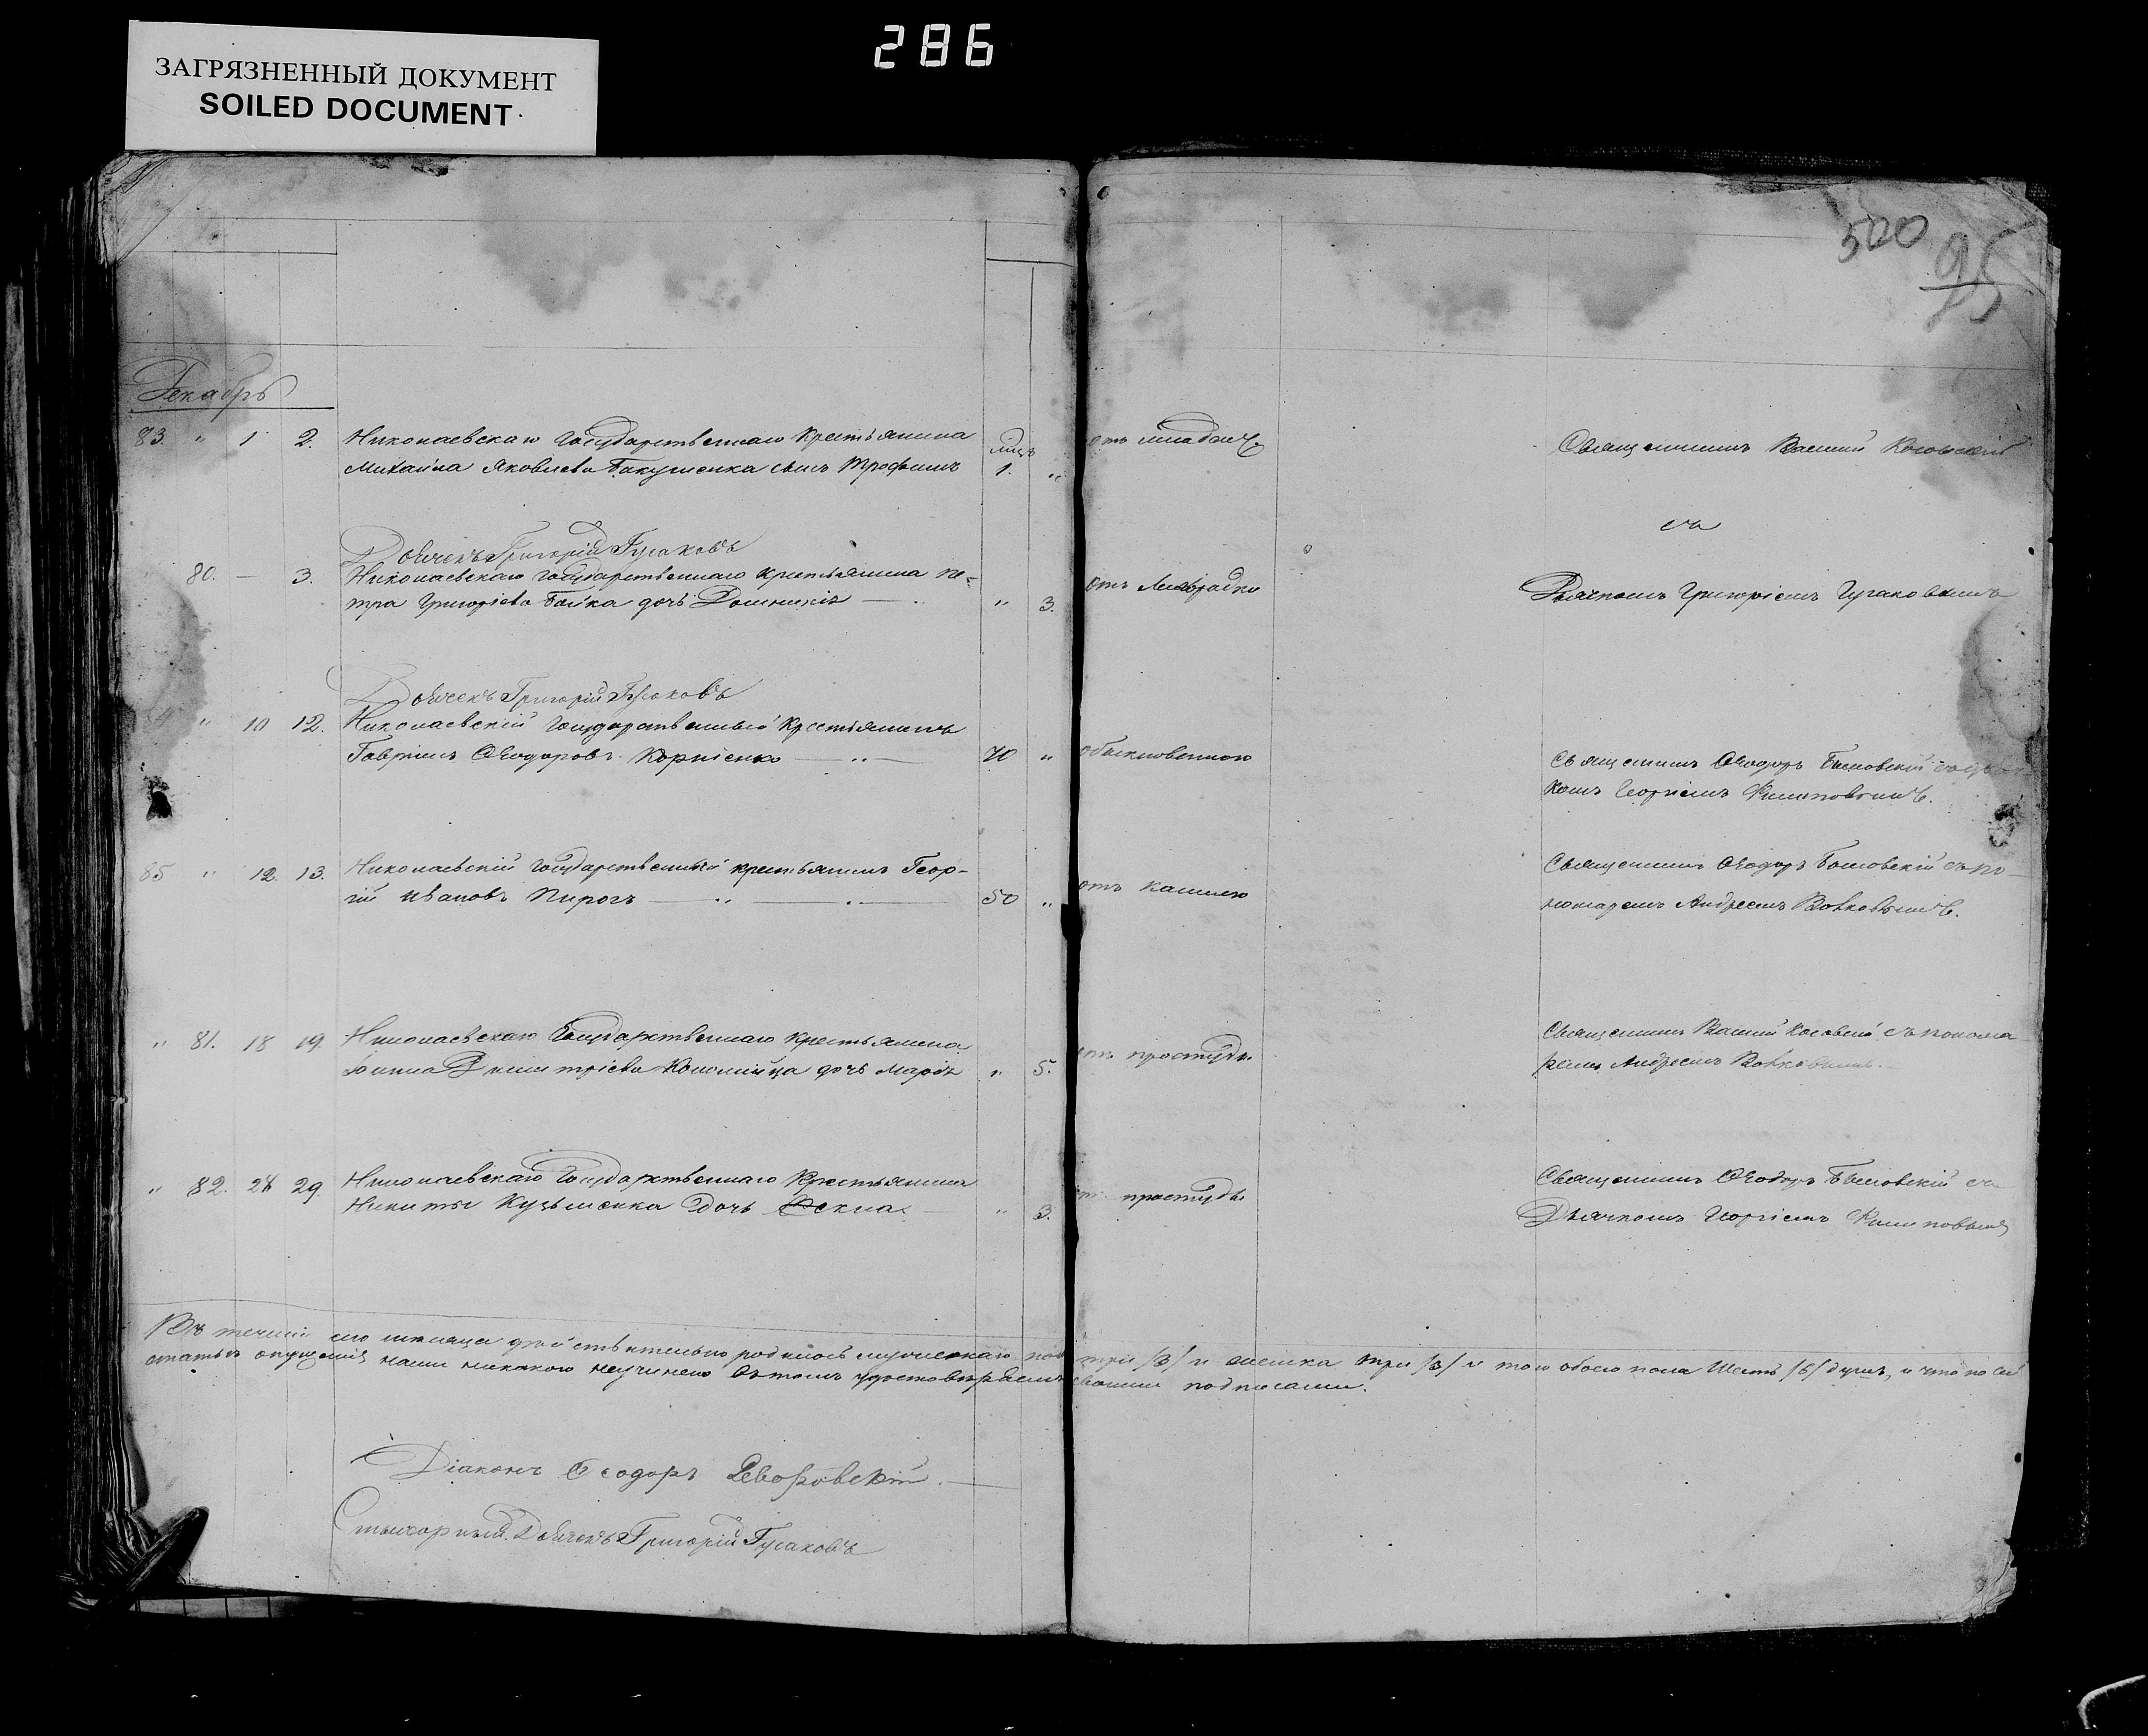 286
ЗАГРЯЗНЕННЫЙ ДОКУМЕНТ
SOILED DOCUMENT
500
95
Декабрь
83. " 1 2. Николаевскаго Государственнаго Крестьянина
Михаила Яковлева сынъ Трофимъ 1. "
отъ младенч.
Священникъ Василій Косовскій
съ
Дьячекъ Григорій Гусаковъ
80. — 3. Николаевскаго Государственнаго крестьянина Пе-
тра Григоріева Бойка дочь Домникія — " 3.
отъ
Дьячкомъ Григоріемъ Гусаковымъ
Дьячекъ Григорій Гусаковъ
" 10 12. Николаевскій Государственный Крестьянинъ
Гавріилъ Ѳеодоровъ Корніенко — " — 70 "
обыкновенною
Священникъ Ѳеодоръ
комъ Георгіемъ Филиповымъ.
85 " 12. 13. Николаевскій Государственный крестьянинъ Геор-
гій Ивановъ Пирогъ — " — 50 "
отъ кашлю
Священникъ Ѳеодоръ съ по-
номаремъ Андреемъ Волковымъ.
" 81. 18 19. Николаевскаго Государственнаго крестьянина
Іоанна Димитріева Коломійца дочь Марія " 5.
отъ простуды
Священникъ Василій Косовскій съ понома
ремъ Андреемъ Волковымъ.
" 82. 28 29. Николаевскаго Государственнаго Крестьянина
Никиты Кузьменка Дочь Ѳекла. " 3.
отъ простуды
Священникъ Ѳеодоръ съ
Дьячкомъ Георгіемъ Филиповымъ
Въ теченіи сего мѣсяца дѣйствительно родилось мужескаго пола три /3/ и женска три /3/ и того обоего пола Шесть /6/ душъ, и что по сей
статьѣ опущенія нами никакого неучинено въ томъ удостовѣряемъ своими подписами.
Діаконъ Ѳеодоръ
Стихарный Дьячекъ Григорій Гусаковъ